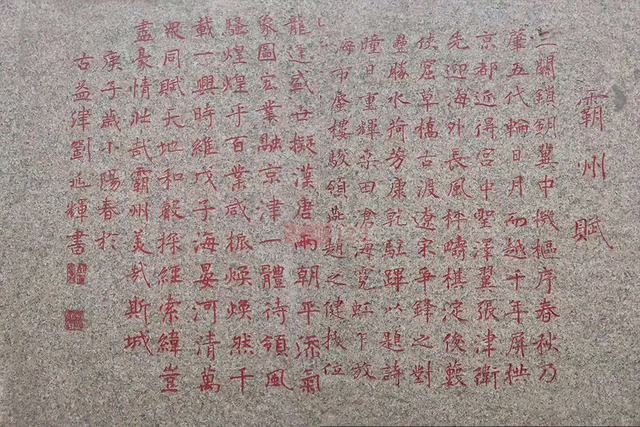 霸州賦
三關鎖鑰冀中機樞序春秋乃
肇五代輪日月而越千年屏拱
京都近得宮中聖澤翼張津衛
先迎海外長風枰疇棋淀俊
伏窟草橋古渡遼宋爭鋒之對
壘勝水荷芳康乾駐蹕以題詩
瞳日重輝桑田滄海霓虹乍放
海市蜃樓駿領燕趙之健機位
龍逢盛世擬漢唐兩朝平添氣
象圖宏業融京津一體待領風
騷煌煌乎百業咸振煥煥然千
載一興時維戊子海晏河清萬
眾同賦天地和穀採經索緯豈
盡豪情壯哉霸州美哉斯城
庚子歲小陽春於
古益津劉兆輝書